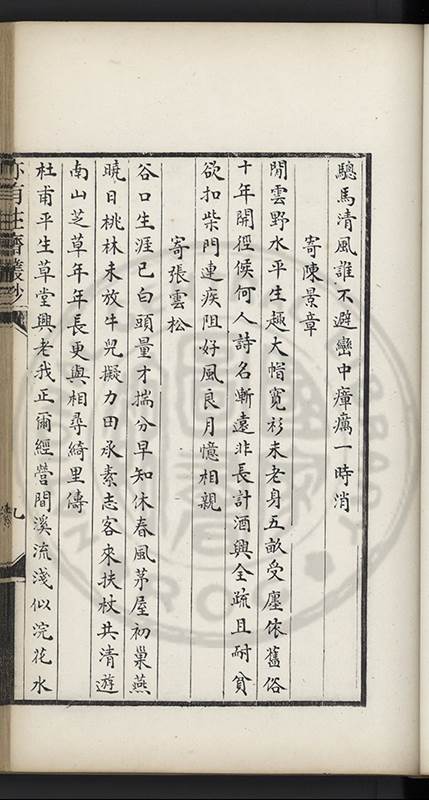 驄馬清風誰不避巒中瘴癘一時消
寄陳景章
閒雲野水平生趣大帽寬衫未老身五畝受廛依舊俗
十年開徑候何人詩名漸遠非長計酒興全疏且耐貧
欲扣柴門連疾阻好風良月憶相親
寄張雲松
谷口生涯已白頭量才揣分早知休春風茅屋初巢燕
曉日桃林未放牛兒擬力田承素志客來扶杖共清遊
南山芝草年年長更與相尋綺里儔
杜甫平生草堂興老我正爾經營間溪流淺似浣花水
亦有生齋叢鈔
九